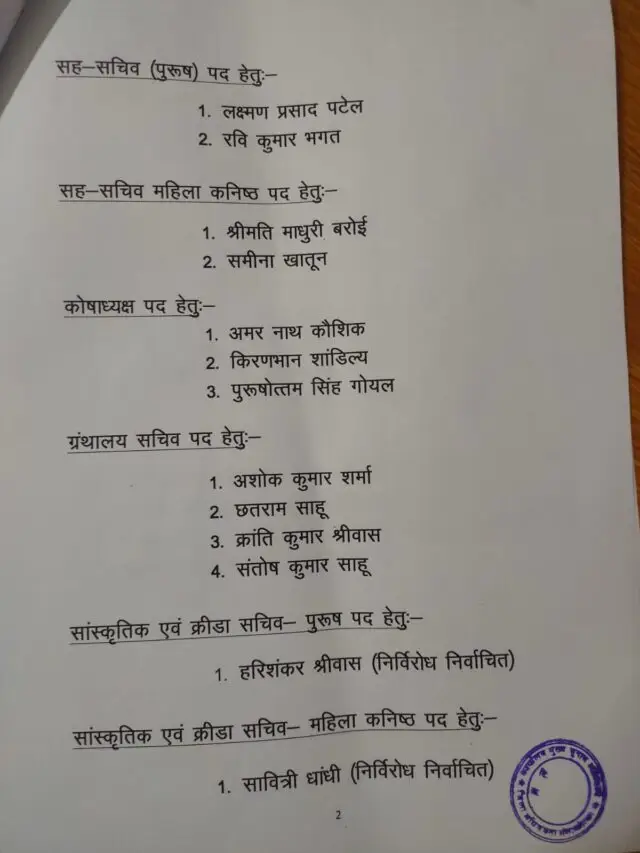 सह–सचिव (पुरूष) पद हेतुः–
1. लक्ष्मण प्रसाद पटेल
2. रवि कुमार भगत
सह–सचिव महिला कनिष्ठ पद हेतुः–
1. श्रीमति माधुरी बरोई
2. समीना खातून
कोषाध्यक्ष पद हेतुः–
1. अमर नाथ कौशिक
2. किरणभान शांडिल्य
3. पुरूषोत्तम सिंह गोयल
ग्रंथालय सचिव पद हेतुः–
1. अशोक कुमार शर्मा
2. छतराम साहू
3. क्रांति कुमार श्रीवास
4. संतोष कुमार साहू
सांस्कृतिक एवं क्रीडा सचिव– पुरूष पद हेतुः–
1. हरिशंकर श्रीवास (निर्विरोध निर्वाचित)
सांस्कृतिक एवं क्रीडा सचिव– महिला कनिष्ठ पद हेतुः–
1. सावित्री धांधी (निर्विरोध निर्वाचित)
2